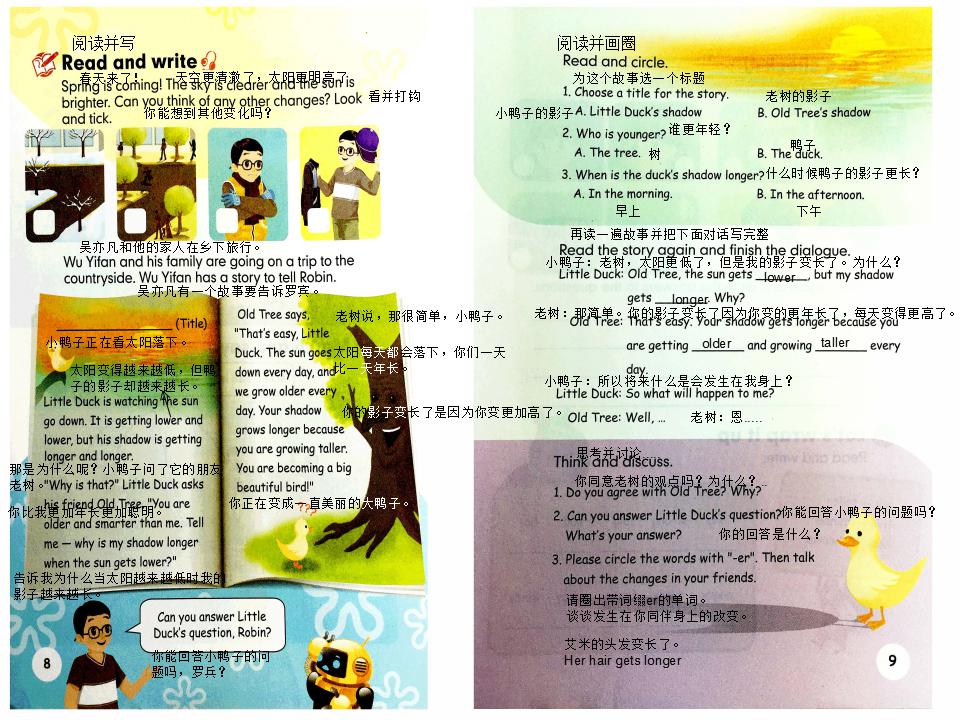 阅读并写
Read and write
春天来了！ 天空更清澈了，太阳更明亮了
Spring is coming! The sky is clearer and the sun is
brighter. Can you think of any other changes? Look
看并打钩
and tick.
你能想到其他变化吗？
吴亦凡和他的家人在乡下旅行。
Wu Yifan and his family are going on a trip to the
countryside. Wu Yifan has a story to tell Robin.
吴亦凡有一个故事要告诉罗宾。
(Title)
小鸭子正在看太阳落下。
太阳变得越来越低，但鸭
子的影子却越来越长。
Little Duck is watching the sun
go down. It is getting lower and
lower, but his shadow is getting
longer and longer.
那是为什么呢？小鸭子问了它的朋友
老树。
"Why is that?" Little Duck asks
his friend Old Tree. "You are
你比我更加年长更加聪明。
older and smarter than me. Tell
me — why is my shadow longer
when the sun gets lower?"
告诉我为什么当太阳越来越低时我的
影子越来越长。
Old Tree says,
老树说，那很简单，小鸭子。
"That's easy, Little
Duck. The sun goes
太阳每天都会落下，你们一天
down every day, and
比一天年长。
we grow older every
day. Your shadow
你的影子变长了是因为你变更加高了。
grows longer because
you are growing taller.
You are becoming a big
beautiful bird!"
你正在变成一直美丽的大鸭子。
Can you answer Little
Duck's question, Robin?
你能回答小鸭子的问
题吗，罗兵？
8
阅读并画圈
Read and circle.
为这个故事选一个标题
1. Choose a title for the story.
老树的影子
小鸭子的影子
A. Little Duck's shadow
B. Old Tree's shadow
2. Who is younger?
谁更年轻？
鸭子
A. The tree.
树
B. The duck.
3. When is the duck's shadow longer?
什么时候鸭子的影子更长？
A. In the morning.
B. In the afternoon.
早上
下午
再读一遍故事并把下面对话写完整
Read the story again and finish the dialogue.
小鸭子：老树，太阳更低了，但是我的影子变长了。为什么？
Little Duck: Old Tree, the sun gets lower, but my shadow
gets longer. Why?
老树：那简单。你的影子变长了因为你变的更年长了，每天变得更高了。
Old Tree: That's easy. Your shadow gets longer because you
are getting older and growing taller every
day.
小鸭子：所以将来什么是会发生在我身上？
Little Duck: So what will happen to me?
Old Tree: Well, ...
老树：恩.....
思考并讨论...
Think and discuss.
你同意老树的观点吗？为什么？..
1. Do you agree with Old Tree? Why?
2. Can you answer Little Duck's question?
你能回答小鸭子的问题吗？
What's your answer?
你的回答是什么？
3. Please circle the words with "-er". Then talk
about the changes in your friends.
请圈出带词缀er的单词。
谈谈发生在你同伴身上的改变。
艾米的头发变长了。
Her hair gets longer
9